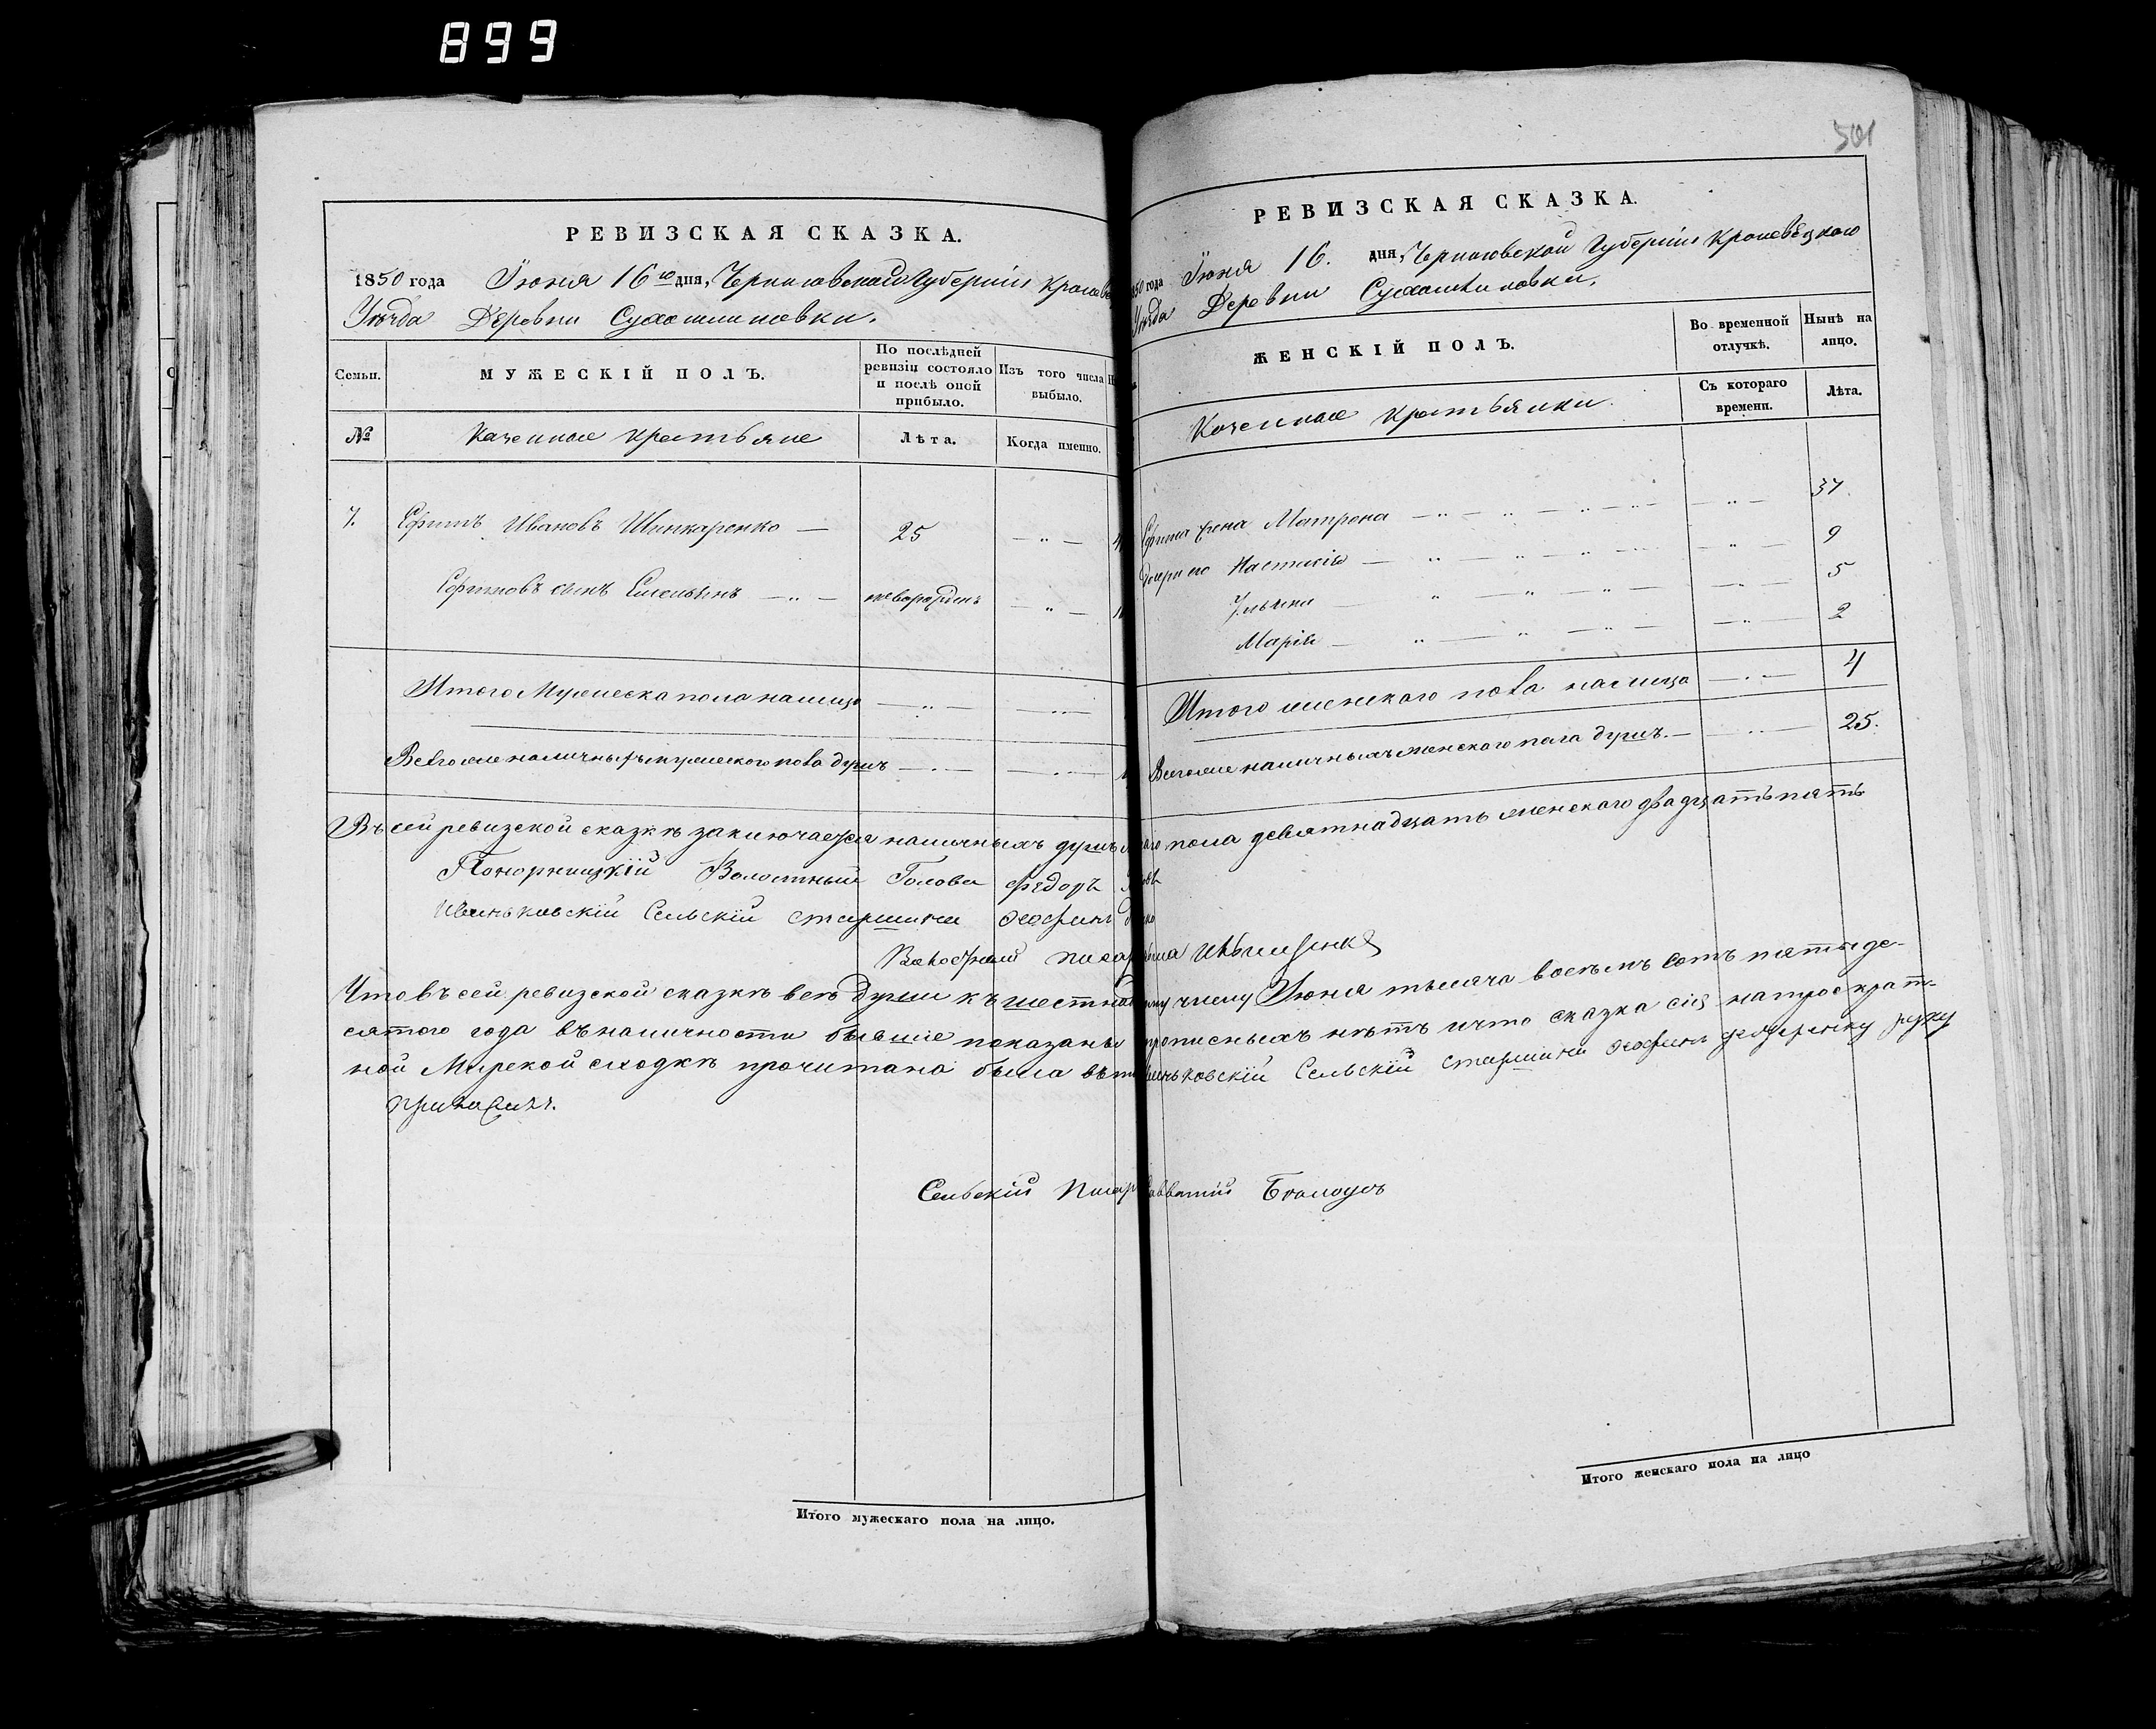 899
501
РЕВИЗСКАЯ СКАЗКА.
1850 года Іюня 16го дня, Черниговской Губерніи Кролеве
Уѣзда Деревни Сухошиновки.
Семьи.
МУЖЕСКІЙ ПОЛЪ.
По послѣдней ревизіи состояло и послѣ оной прибыло.
Изъ того числа выбыло.
№
Казенные крестьяне
Лѣта.
Когда именно.
7. Ефимъ Ивановъ Шинкаренко — 25 — „ —
Ефимовъ сынъ Емельянъ — „ — новорожденъ — „ —
Итого Мужеска пола налицо — „ — — „ —
Всего же наличныхъ мужескаго пола душъ — „ — — „ —
РЕВИЗСКАЯ СКАЗКА.
1850 года Іюня 16. дня, Черниговской Губерніи Кролевѣцкого
Уѣзда Деревни Сухошиновки.
ЖЕНСКІЙ ПОЛЪ.
Во временной отлучкѣ.
Нынѣ на лицо.
Съ котораго времени.
Лѣта.
Казенные крестьянки
Ефима жена Матрона — „ — 37.
Дочери его Настасія — „ — 9
Ульяна — „ — 5
Марія — „ — 2
Итого женского пола налицо — „ — 4
Всего же наличныхъ женского пола душъ. — „ — 25.
Въ сей ревизской сказкѣ заключается наличныхъ душъ пола девятнадцать женского двадцать пять
Понорницкій Волостный Голова Федоръ
Сельскій старшина
Волостный писарь
Что въ сей ревизской сказкѣ всѣ души къ числу Іюня тысяча восемь сотъ пятьде-
сятого года въ наличности бывшіе показаны прописныхъ нѣтъ и что сказка сія на троекрат-
ной Мирской сходкѣ прочитана была въ Сельскій старшина руку
приложилъ.
Сельскій Писарь
Итого мужескаго пола на лицо.
Итого женскаго пола на лицо